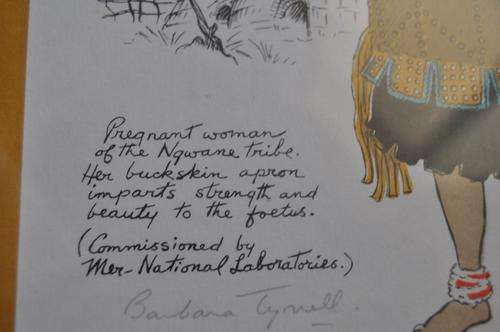 Pregnant woman
of the Ngwane tribe.
Her buckskin apron
imparts strength and
beauty to the foetus.
(Commissioned by
Mer-National Laboratories.)
Barbara Tyrrell.